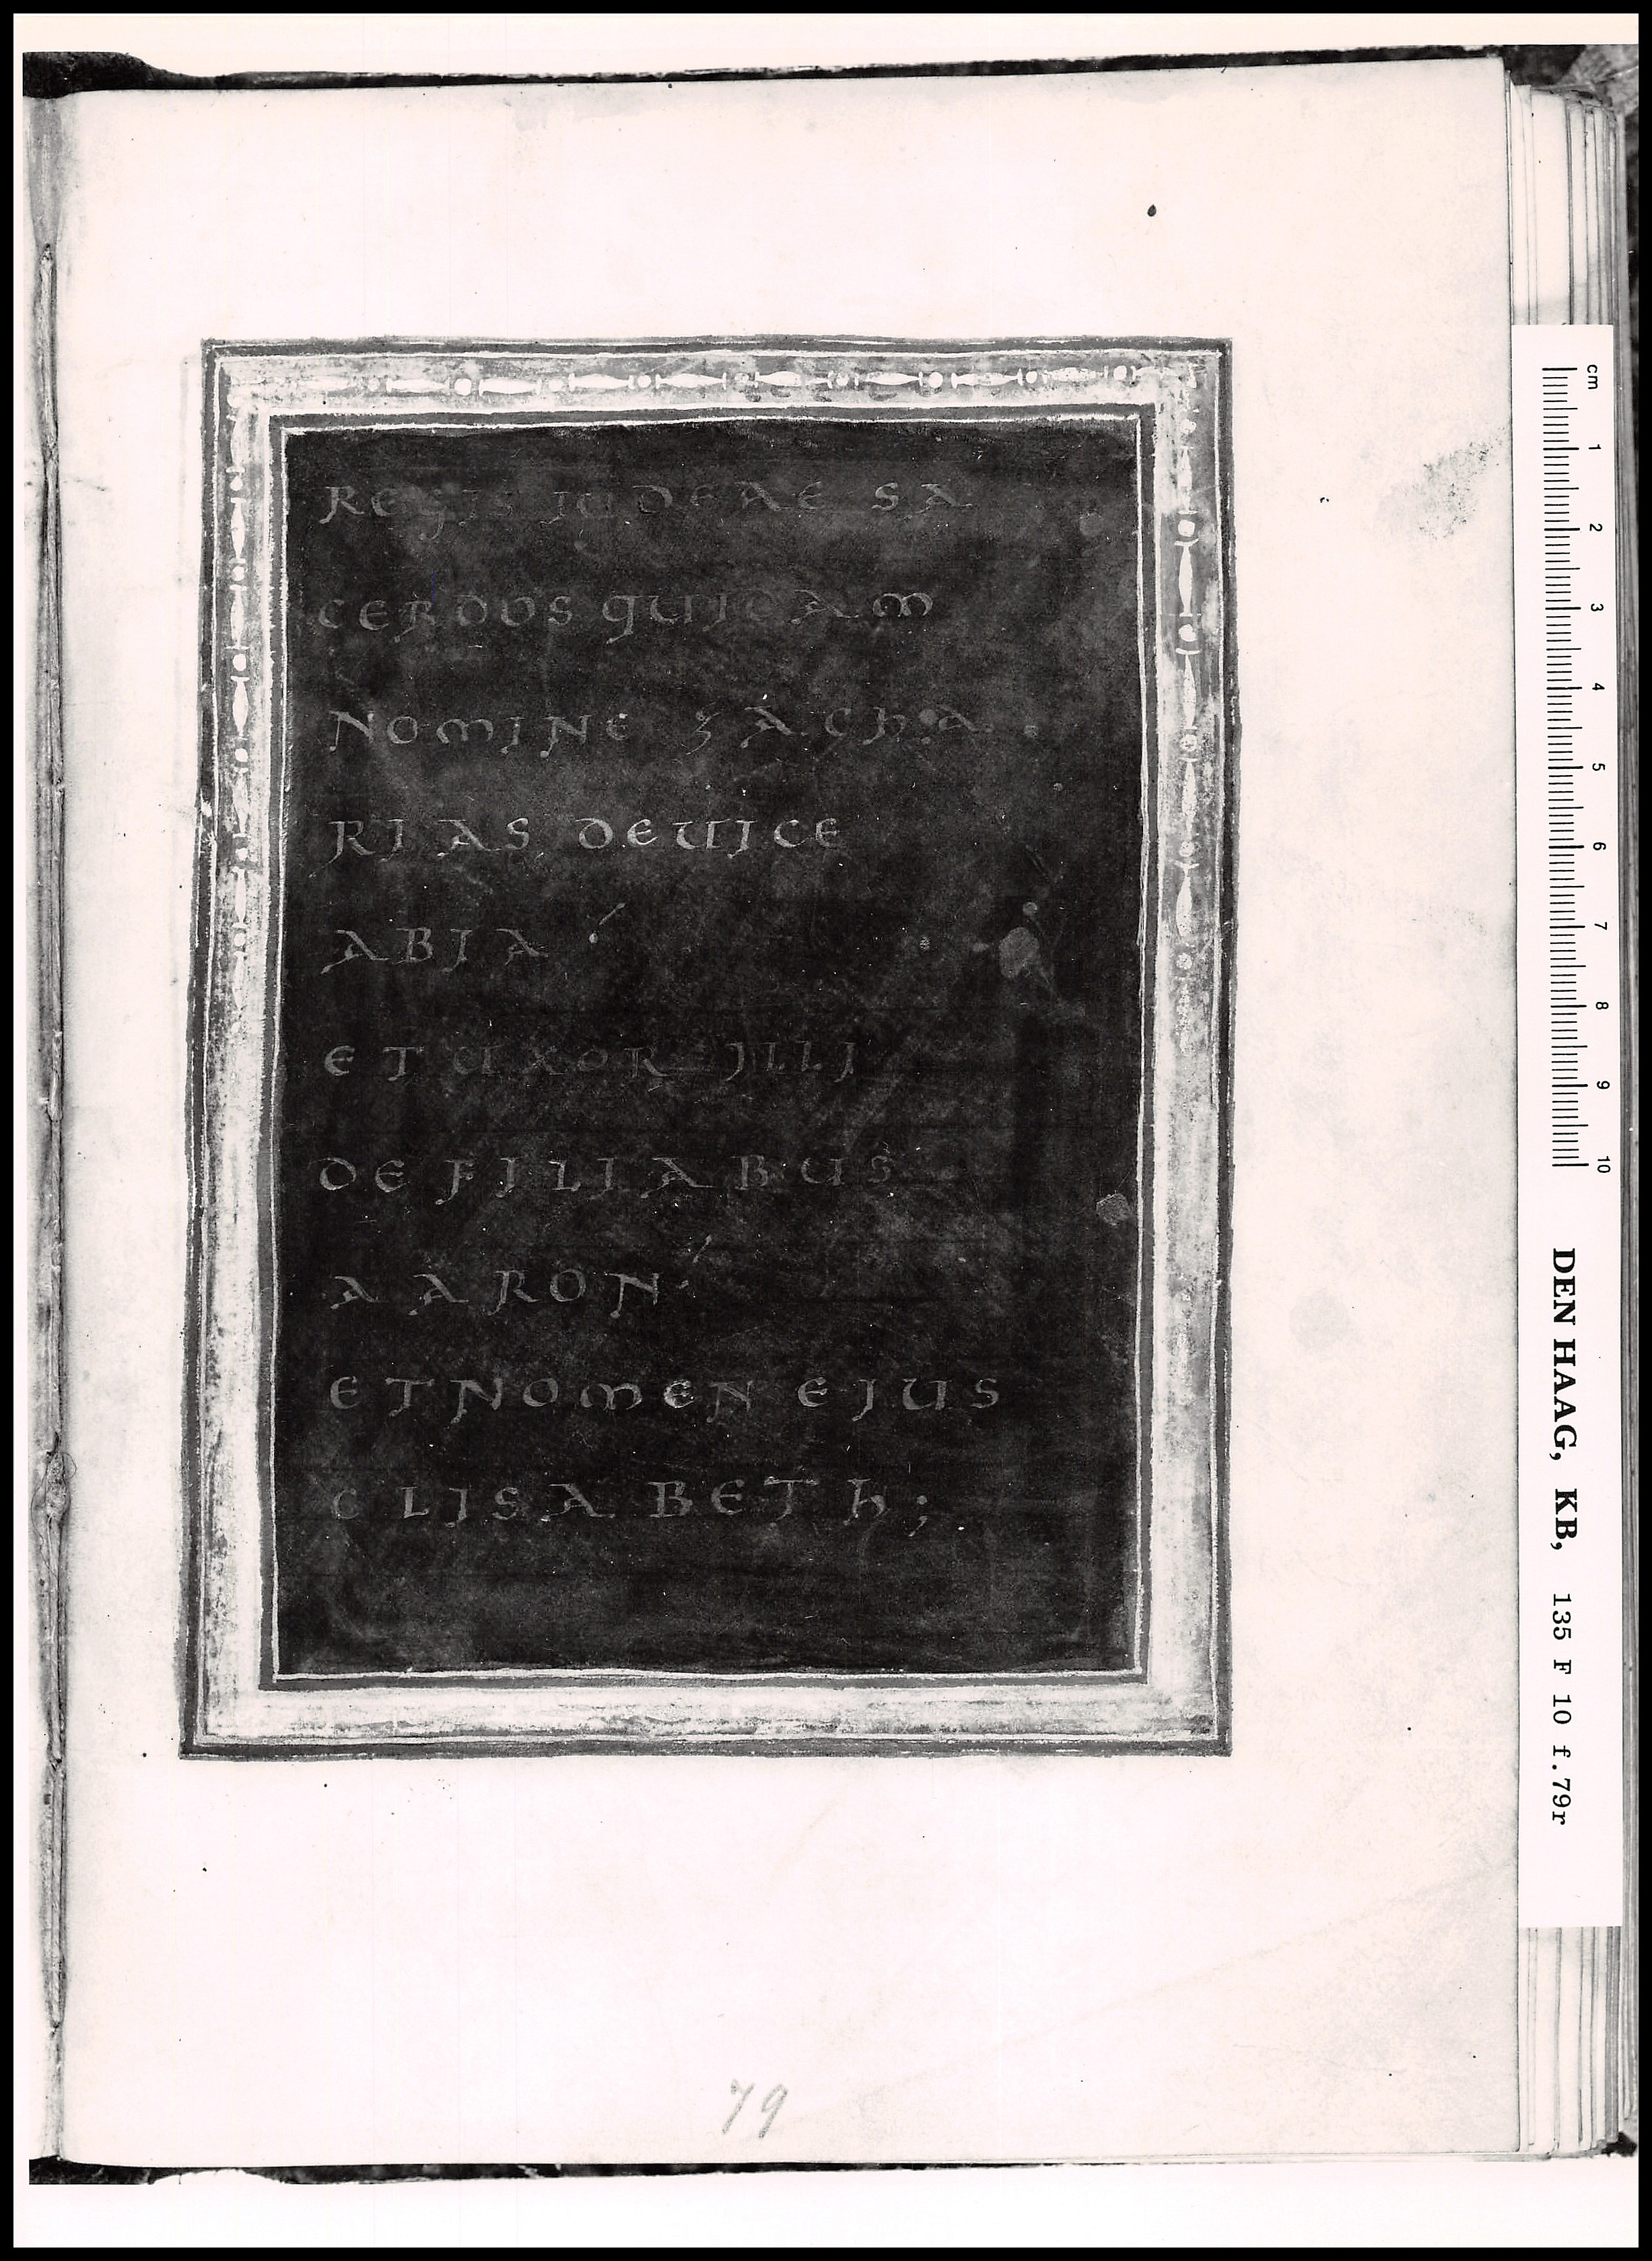 REGIS IUDEAE SA
CERDOS QUIDAM
NOMINE ZACHA
RIAS DEUICE
ABIA
ET UXOR ILLI
DE FILIABUS
AARON
ETNOMEN EIUS
ELISABETH;
79
cm 1 2 3 4 5 6 7 8 9 10
DEN HAAG, KB, 135 F 10 f.79r